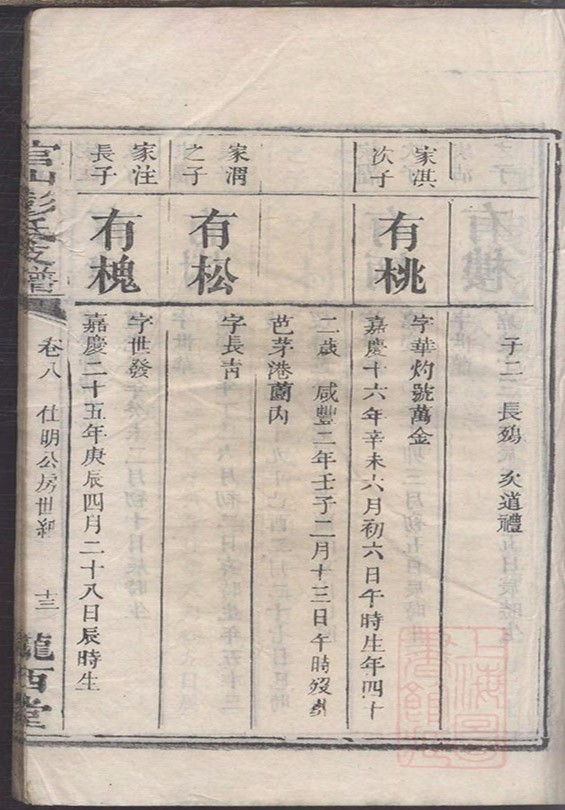 子二 長殤 次道禮
家淇
次子
有桃
字華灼號萬金
嘉慶十六年辛未六月初六日午時生年四十
二歲 咸豐二年壬子二月十三日午時歿葬
芭茅港薗內
家渭
之子
有松
字長青
家注
長子
有槐
字世發
嘉慶二十五年庚辰四月二十八日辰時生
官山彭氏支譜
卷八 仕明公房世紀 十三
隴西堂
上海圖書館藏